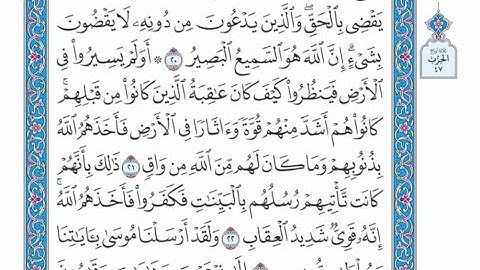 يَقْضِي بِٱلْحَقِّ ۖ وَٱلَّذِينَ يَدْعُونَ مِن دُونِهِۦ لَا يَقْضُونَ
بِشَىْءٍ ۗ إِنَّ ٱللَّهَ هُوَ ٱلسَّمِيعُ ٱلْبَصِيرُ ٢٠ ۞ أَوَلَمْ يَسِيرُوا۟ فِى
ٱلْأَرْضِ فَيَنظُرُوا۟ كَيْفَ كَانَ عَٰقِبَةُ ٱلَّذِينَ كَانُوا۟ مِن قَبْلِهِمْ ۚ
كَانُوا۟ هُمْ أَشَدَّ مِنْهُمْ قُوَّةً وَءَاثَارًا فِى ٱلْأَرْضِ فَأَخَذَهُمُ ٱللَّهُ
بِذُنُوبِهِمْ وَمَا كَانَ لَهُم مِّنَ ٱللَّهِ مِن وَاقٍ ٢١ ذَٰلِكَ بِأَنَّهُمْ
كَانَت تَّأْتِيهِمْ رُسُلُهُم بِٱلْبَيِّنَٰتِ فَكَفَرُوا۟ فَأَخَذَهُمُ ٱللَّهُ ۚ
إِنَّهُۥ قَوِىٌّ شَدِيدُ ٱلْعِقَابِ ٢٢ وَلَقَدْ أَرْسَلْنَا مُوسَىٰ بِـَٔايَٰتِنَا
الحزب
٤٧